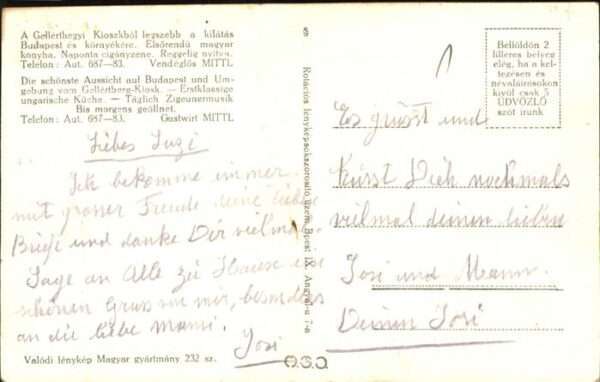 A Gellérthegyi Kioszkból legszebb a kilátás
Budapest és környékére. Elsőrendü magyar
konyha. Naponta cigányzene. Reggelig nyitva.
Telefon: Aut. 687—83. Vendéglős MITTL
Die schönste Aussicht auf Budapest und Um-
gebung vom Gellértberg-Kiosk. — Erstklassige
ungarische Küche. — Täglich Zigeunermusik
Bis morgens geöffnet.
Telefon: Aut. 687—83. Gastwirt MITTL
Liebes Suzi
Ich bekomme immer
mit grosser Freude deine liebe
Briefe und danke Dir vielmals
Sage an Alle zu Hause
schönen Gruss von mir, besonders
an die liebe Mami.
Josi
Valódi fénykép Magyar gyártmány 232 sz.
Rotációs fényképsokszorosító üzem, Bpest IX. Angyal-u 7-a
O.S.O.
Belföldön 2
filléres bélyeg
elég, ha a kel-
tezésen és
névaláirásokon
kivül csak 5
ÜDVÖZLŐ
szót irunk
Es grüsst und
küsst Dich nochmals
vielmal deinen lieben
Josi und Mann.
Deinen Josi